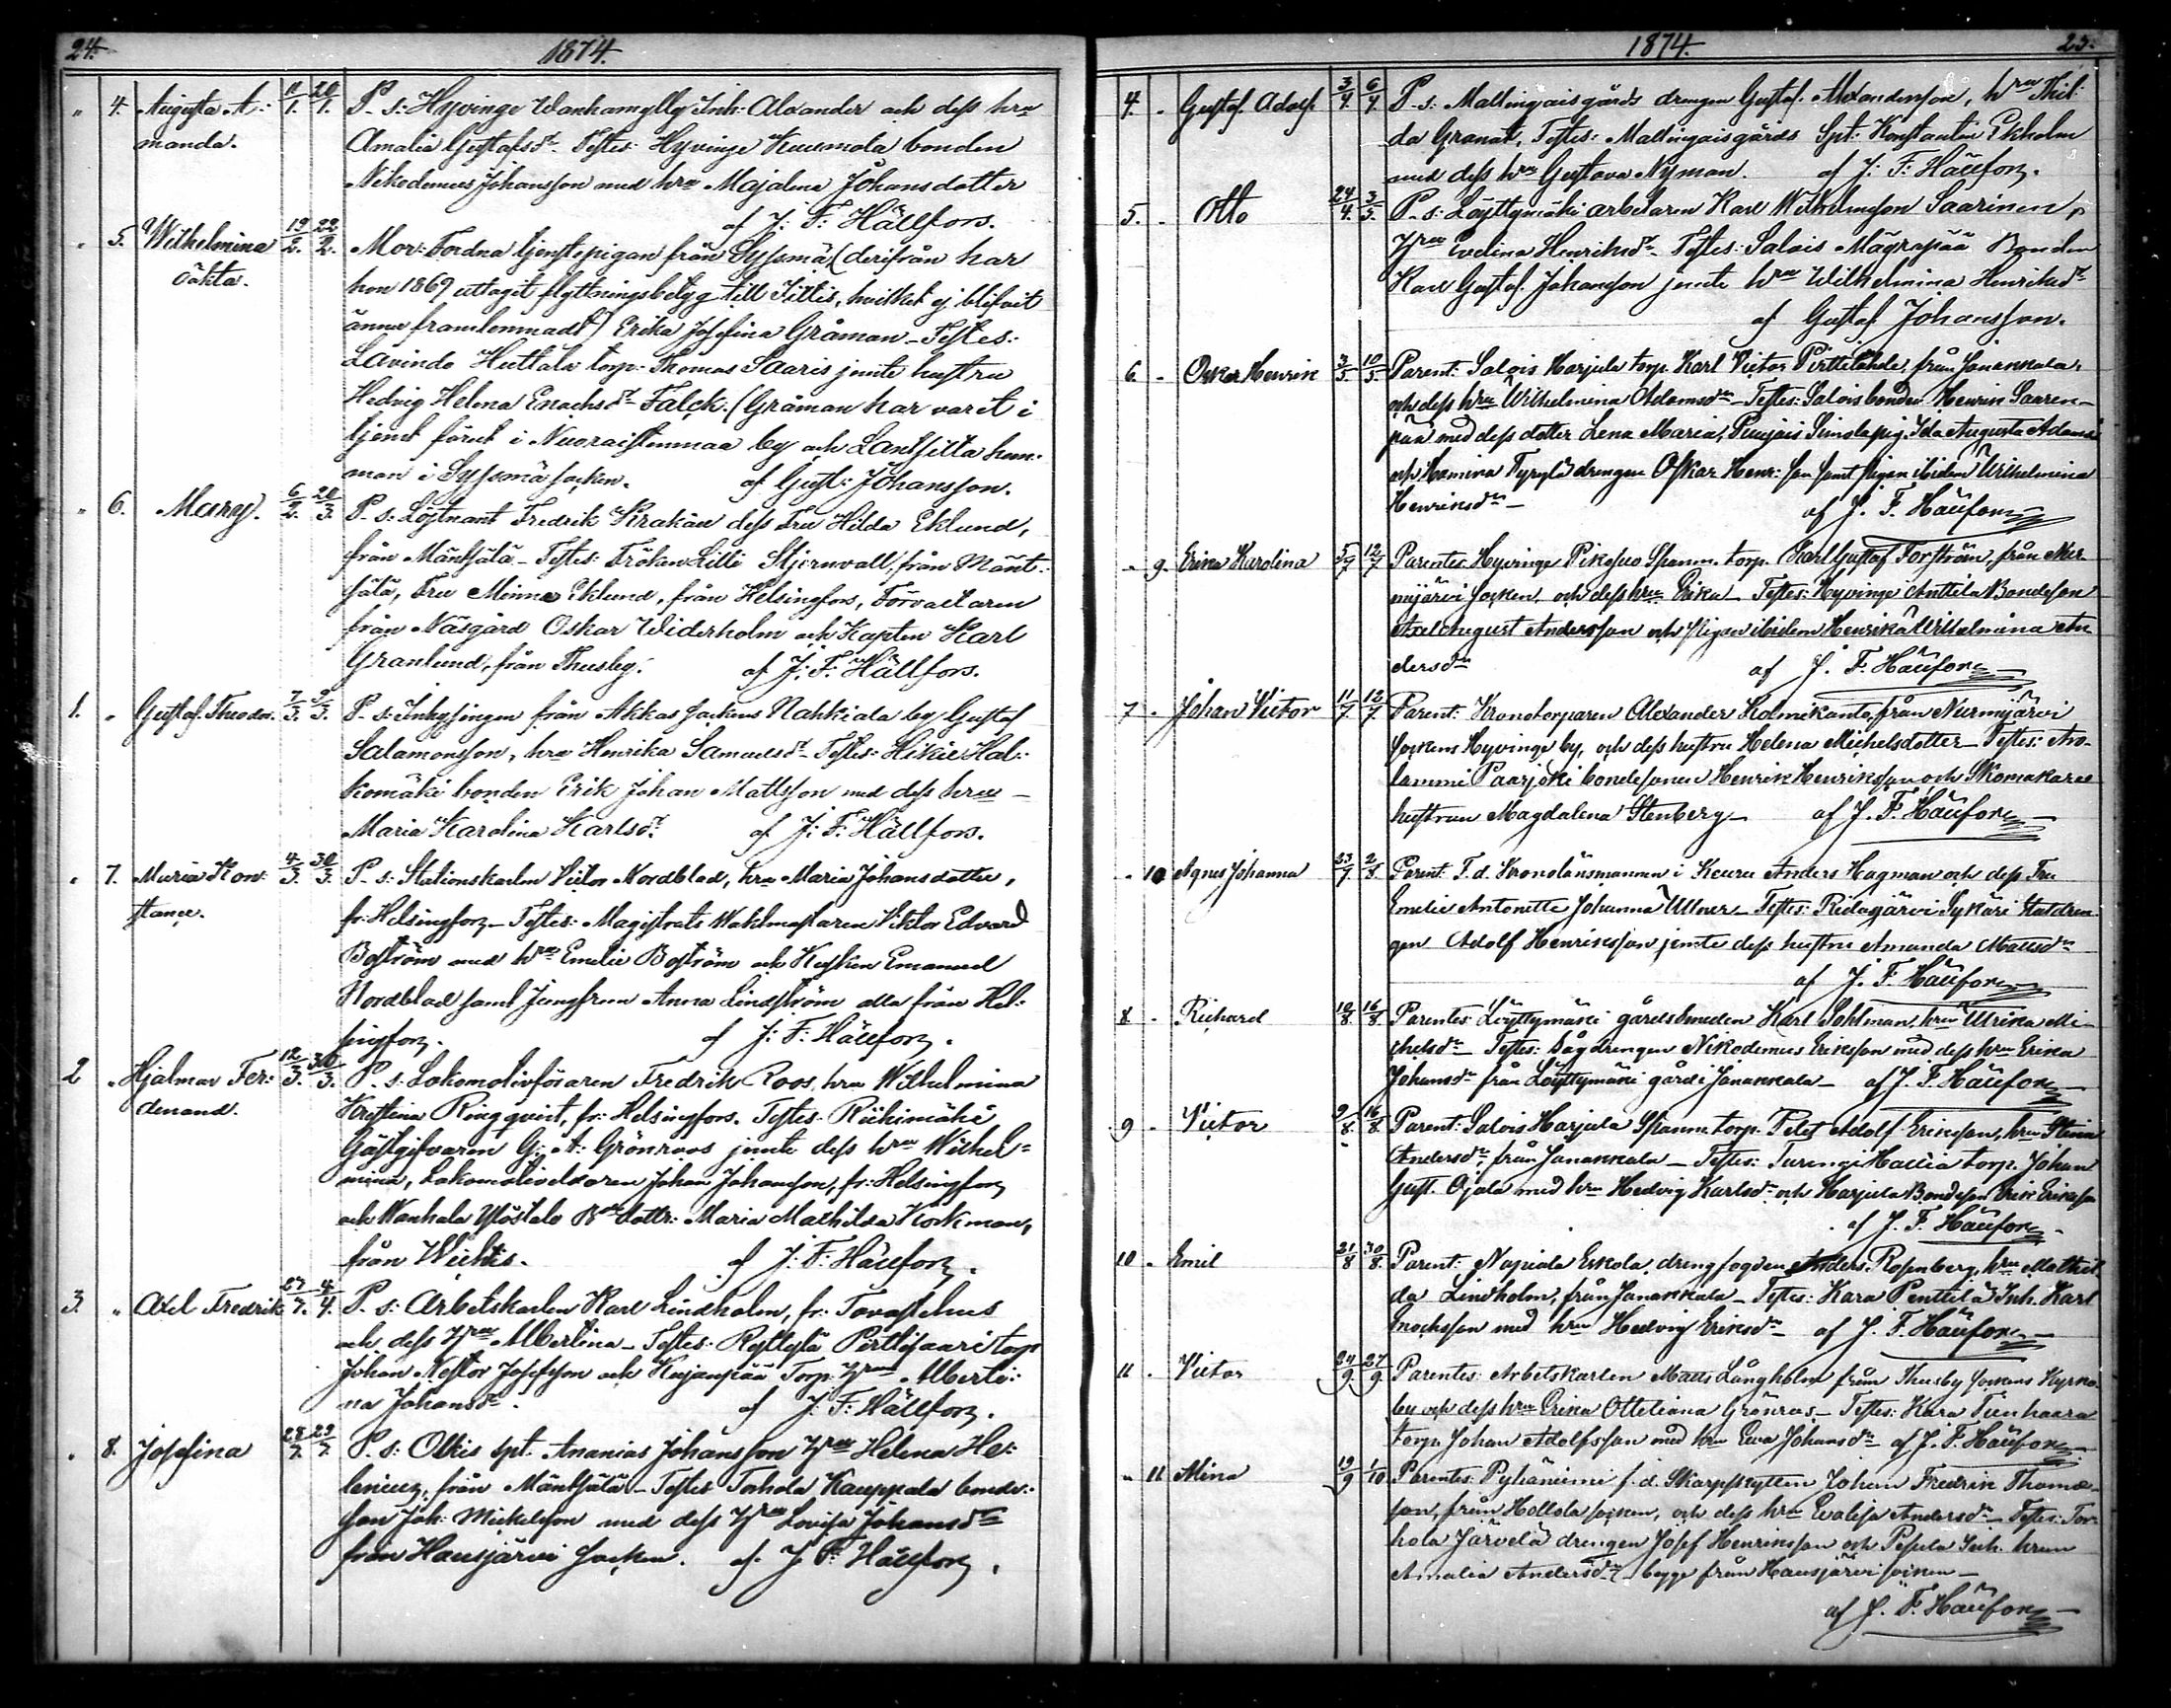 24. 1874.
" 4. Augusta A: 11/1. 20/1. P. s: Hyvinge Wanhamylly Inh: Alexander och dess hru
manda. Amalia Gustafsdr. Testes: Hyvinge Kuumola bonden
Nikodemus Johansson med hru Majalena Johansdotter
af J: F: Hällfors.
" 5. Wilhelmina 19/2. 22/2. Mor: Fordna tjenstepigan från Syssmä (derifrån har
oäkta. hon 1869 uttagit flyttningsbetyg till Sittis, hvilket ej blifvit
ännu framlemnadt) Erika Josefina Gråman - Testes:
Lavinda Huttala torp: Thomas Saaris jemte hustru
Hedvig Helena Enochsdr Falck. (Gråman har varit i
tjenst förut i by och hem-
man i Syssmä socken. af Gust: Johansson.
" 6. Mary. 6/2. 20/3. P. s: Löjtnant Fredrik Krakau dess Fru Hilda Eklund,
från Mäntsälä - Testes: Fröken Lilli Stjernvall, från Mänt-
sälä, Fru Minna Eklund, från Helsingfors, Förvaltaren
från Näsgård Oskar Widerholm och Kapten Karl
Granlund, från Thusby. af J: F: Hällfors.
1. " Gustaf Theodor. 7/3. 9/3. P. s: Inhysingen från Akkas sockens Nahkiala by Gustaf
Salamonsson, hru Henrika Samuelsdr - Testes: Hikiä Hal-
komäki bonden Erik Johan Mattsson med dess hru -
Maria Karolina Karlsdr. af J: F: Hällfors.
" 7. Maria Kon: 4/3. 30/3. P. s: Stationskarlen Viktor Nordblad, hru Maria Johansdotter,
stance. fr: Helsingfors - Testes: Magistrats Wahtmästaren Viktor Edvard
Boström med hru Emelie Boström och Kusken Emanuel
Nordblad samt Jungfrun Anna Lindström alla från Hel-
singfors. af J: F: Hällfors.
2 " Hjalmar Fer: 12/3. 30/3. P. s: Lokomotivföraren Fredrik Roos, hru Wilhelmina
dinand. Kristina Ringqvist, fr: Helsingfors. Testes: Riihimäki
Gästgifvaren G: A: Grönroos jemte dess hru Wilhel-
mina, Lokomotiveldaren Johan Johansson, fr: Helsingfors
och Wanhala Ylöstalo Bdedottr: Maria Mathilda Korkman,
från Wichtis. af J: F: Hällfors.
3. " Axel Fredrik 4/4. P. s: Arbetskarlen Karl Lindholm, fr: Tavastehus
och dess Hru Albertina - Testes: Ryttylä Pirttisaari torp
Johan Nestor Josefsson och Kujanpää Torp: Hru Alberti-
na Johansdr. af J: F: Hällfors.
" 8. Josefina P. s: Ollis spt. Ananias Johansson Hru Helena He-
lenius, från Mäntsälä - Testes Torhola Kauppala bonde-
son Joh: Mickelsson med dess Hru Lovisa Johansdr
från Hausjärvi Socken. af J: F: Hällfors.
1874. 25.
4. - Gustaf Adolf 3/4. 6/4. P. s: Mallingaisgårds drengen Gustaf Alexandersson, hru Thil-
da Granat, Testes: Mallingaisgårds Spt: Konstantin Ekholm
med dess hru Gustava Nyman. af J: F: Hällfors.
5. - Otto 24/4. 3/5. P. s: Löyttymäki arbetaren Karl Wilhelmsson Saarinen,
Hru Evelina Henriksdr - Testes: Salois Mägrapää Bonden
Karl Gustaf Johansson jemte hru Wilhelmina Henriksdr
af Gustaf Johansson.
6. - Oskar Henrik 3/5. 10/5. Parent: Salois Harjula torp. Karl Victor Pirttilahde, från Janakkala,
och dess hru Wilhelmina Adamsdr - Testes: Salois bonden Henrik Saaren-
pää med dess dotter Lena Maria, pig. Ida Augusta Adamsdr
och drengen Oskar Henr: son samt pigan ibidem Wilhelmina
Henriksdr - af J. F. Hällfors
- 9. Erika Karolina 5/7 12/7 Parentes Hyvinge Pikasuo Spanm. torp. Karl Gustaf Forström, från Nur-
mijärvi socken, och dess hru Erika - Testes: Hyvinge Anttila Bondeson
Axel August Andersson och pigan ibidem Henrika Wilhelmina An-
dersdr af J. F. Hällfors
7 - Johan Victor 11/7 12/7 Parent: Kronotorparen Alexander Kolmikanto, från Nurmijärvi
sockens Hyvinge by, och dess hustru Helena Michelsdotter - Testes: Aro-
lammi Paarjoki bondesonen Henrik Henriksson och Skomakare
hustrun Magdalena Stenberg - af J. F. Hällfors
- 10 Agnes Johanna 23/7 2/8. Parent: T. d. Kronolänsmannen i Keuru Anders Hagman och dess Fru
Emelie Antonette Johanna Ullner - Testes: Ridasjärvi Sykäri Statdren-
gen Adolf Henriksson jemte dess hustru Amanda Mattsdr
af J. F. Hällfors
8 - Richard 10/8. 16/8. Parentes: Löyttymäki gårdssmeden Karl Sohlman, hru Ulrika Mi-
chelsdr - Testes: Sågdrengen Nikodemus Eriksson med dess hru Erika
Johansdr från Löyttymäki gård i Janakkala - af J. F. Hällfors
9 - Victor 9/8. 16/8. Parent: Salois Harjula Spanm. torp. Adolf Eriksson, hru Stina
Andersdr, från Janakkala - Testes: Turengi Hallia torp. Johan
Gust. Ojala med hru Hedvig Karlsdr och Harjula Bondeson Erik Eriksson
af J. F. Hällfors
10 - Emil 21/8 30/8. Parent: Napiala Eskola, drengfogden Anders Rosenberg, hru Mathil-
da Lindholm, från Janakkala - Testes: Kara Penttilä Inh. Karl
Enochsson med hru Hedvig Eriksdr - af J. F. Hällfors
11 - Victor 24/9. 27/9. Parentes: Arbetskarlen Matts Långholm från Thusby sockens Kyrko-
by och dess hru Erika Otteliana Grönroos - Testes: Kara Tienhaara
torp. Johan Adolfsson med hru Eva Johansdr - af J. F. Hällfors
- 11 Mina 19/9 1/10 Parentes: f. d. Skarpskytten Johan Fredrik Thomas-
son, från Hollola socken, och dess hru Evalisa Andersdr - Testes: Tor-
hola Järvelä drengen Josef Henriksson och Pesula Inh. hrun
Amalia Andersdr - begge från Hausjärvi socken -
af J. F. Hällfors